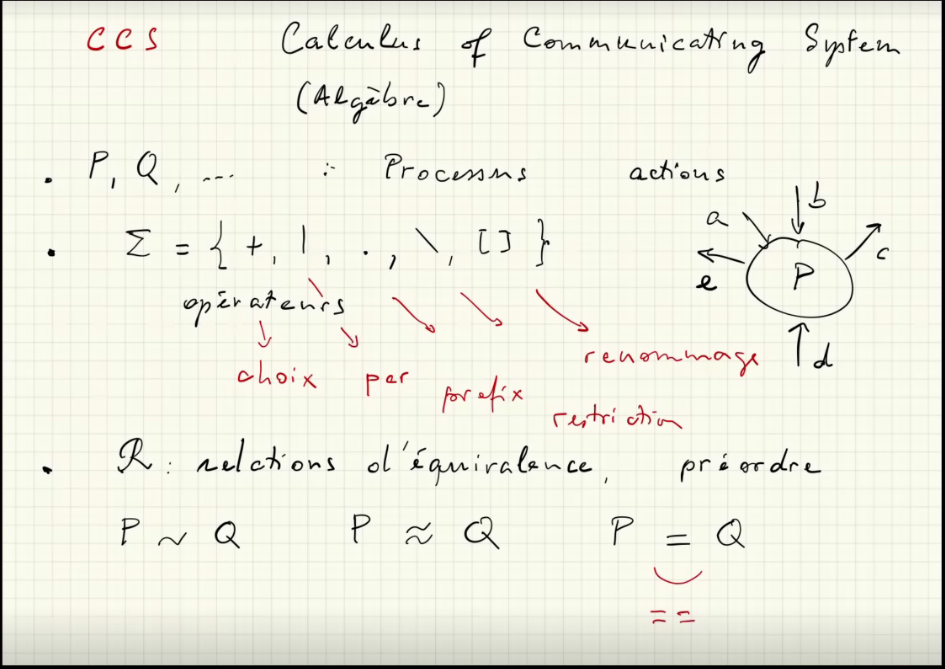 CCS Calculus of Communicating System
(Algèbre)
• P, Q, ... : Processus actions
• Σ = { +, |, ·, \, [] }
a b c P e d
opérateurs
choix par prefix renommage
restriction
• R : relations d'équivalence, préordre
P ~ Q P ≈ Q P = Q
==